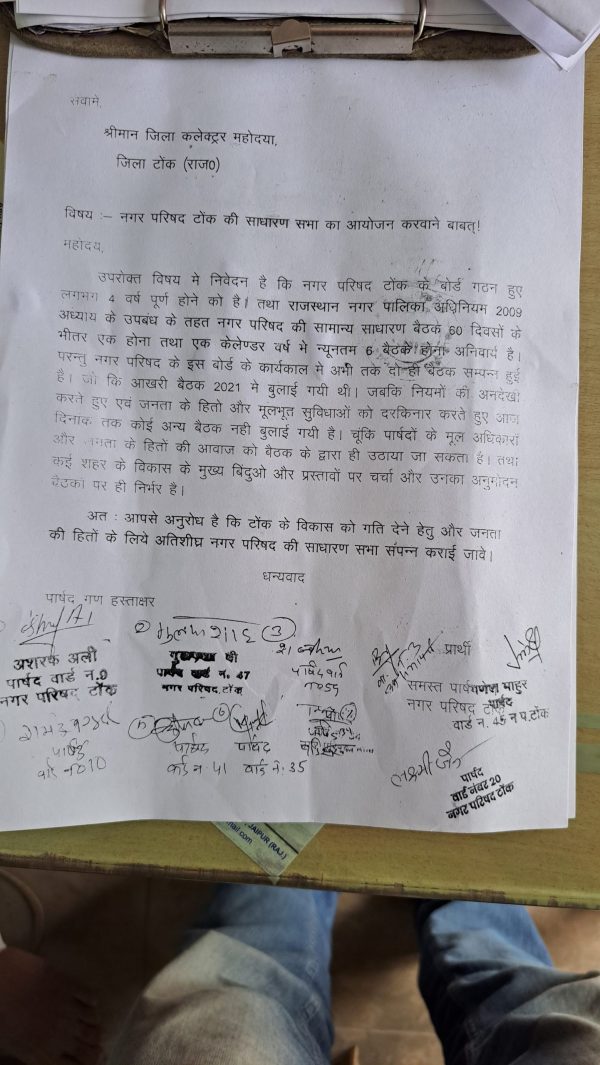 सेवामे,
श्रीमान जिला कलेक्ट्रर महोदया,
जिला टोंक (राज0)
विषय :– नगर परिषद टोंक की साधारण सभा का आयोजन करवाने बाबत्!
महोदय,
उपरोक्त विषय मे निवेदन है कि नगर परिषद टोंक के बोर्ड गठन हुए
लगभग 4 वर्ष पूर्ण होने को है। तथा राजस्थान नगर पालिका अधिनियम 2009
अध्याय के उपबंध के तहत नगर परिषद की सामान्य साधारण बैठक 60 दिवसों के
भीतर एक होना तथा एक केलेण्डर वर्ष मे न्यूनतम 6 बैठके होना अनिवार्य है।
परन्तु नगर परिषद के इस बोर्ड के कार्यकाल मे अभी तके दो ही बैठक सम्पन्न हुई
है। जो कि आखरी बैठक 2021 मे बुलाई गयी थी। जबकि नियमों की अनदेखी
करते हुए एवं जनता के हितो और मूलभूत सुविधाओं को दरकिनार करते हुए आज
दिनाक तक कोई अन्य बैठक नही बुलाई गयी है। चूंकि पार्षदों के मूल अधिकारों
और जनता के हितों की आवाज को बैठक के द्वारा ही उठाया जा सकता है। तथा
कई शहर के विकास के मुख्य बिदुओ और प्रस्तावों पर चर्चा और उनका अनुमोदन
बैठको पर ही निर्भर है।
अत : आपसे अनुरोध है कि टोंक के विकास को गति देने हेतु और जनता
की हितों के लिये अतिशीघ्र नगर परिषद की साधारण सभा संपन्न कराई जावे।
धन्यवाद
पार्षद गण हस्ताक्षर
प्रार्थी
अशरफ अली
पार्षद वार्ड न.9
नगर परिषद टोंक
वार्ड न. 47
नगर परिषद, टोंक
समस्त पार्षद
नगर परिषद टोंक
गणेश माहुर
पार्षद
वार्ड न. 45 न प. टोंक
पार्षद
वार्ड न010
पार्षद
वार्ड न 41
पार्षद
वार्ड न. 35
लक्ष्मी जैन
पार्षद
वार्ड नंबर 20
नगर परिषद टोंक
JAIPUR (RAJ.)
mail.com